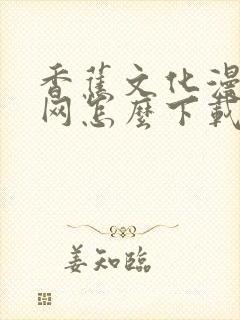 香蕉文化漫
网怎麼下載
姜知臨